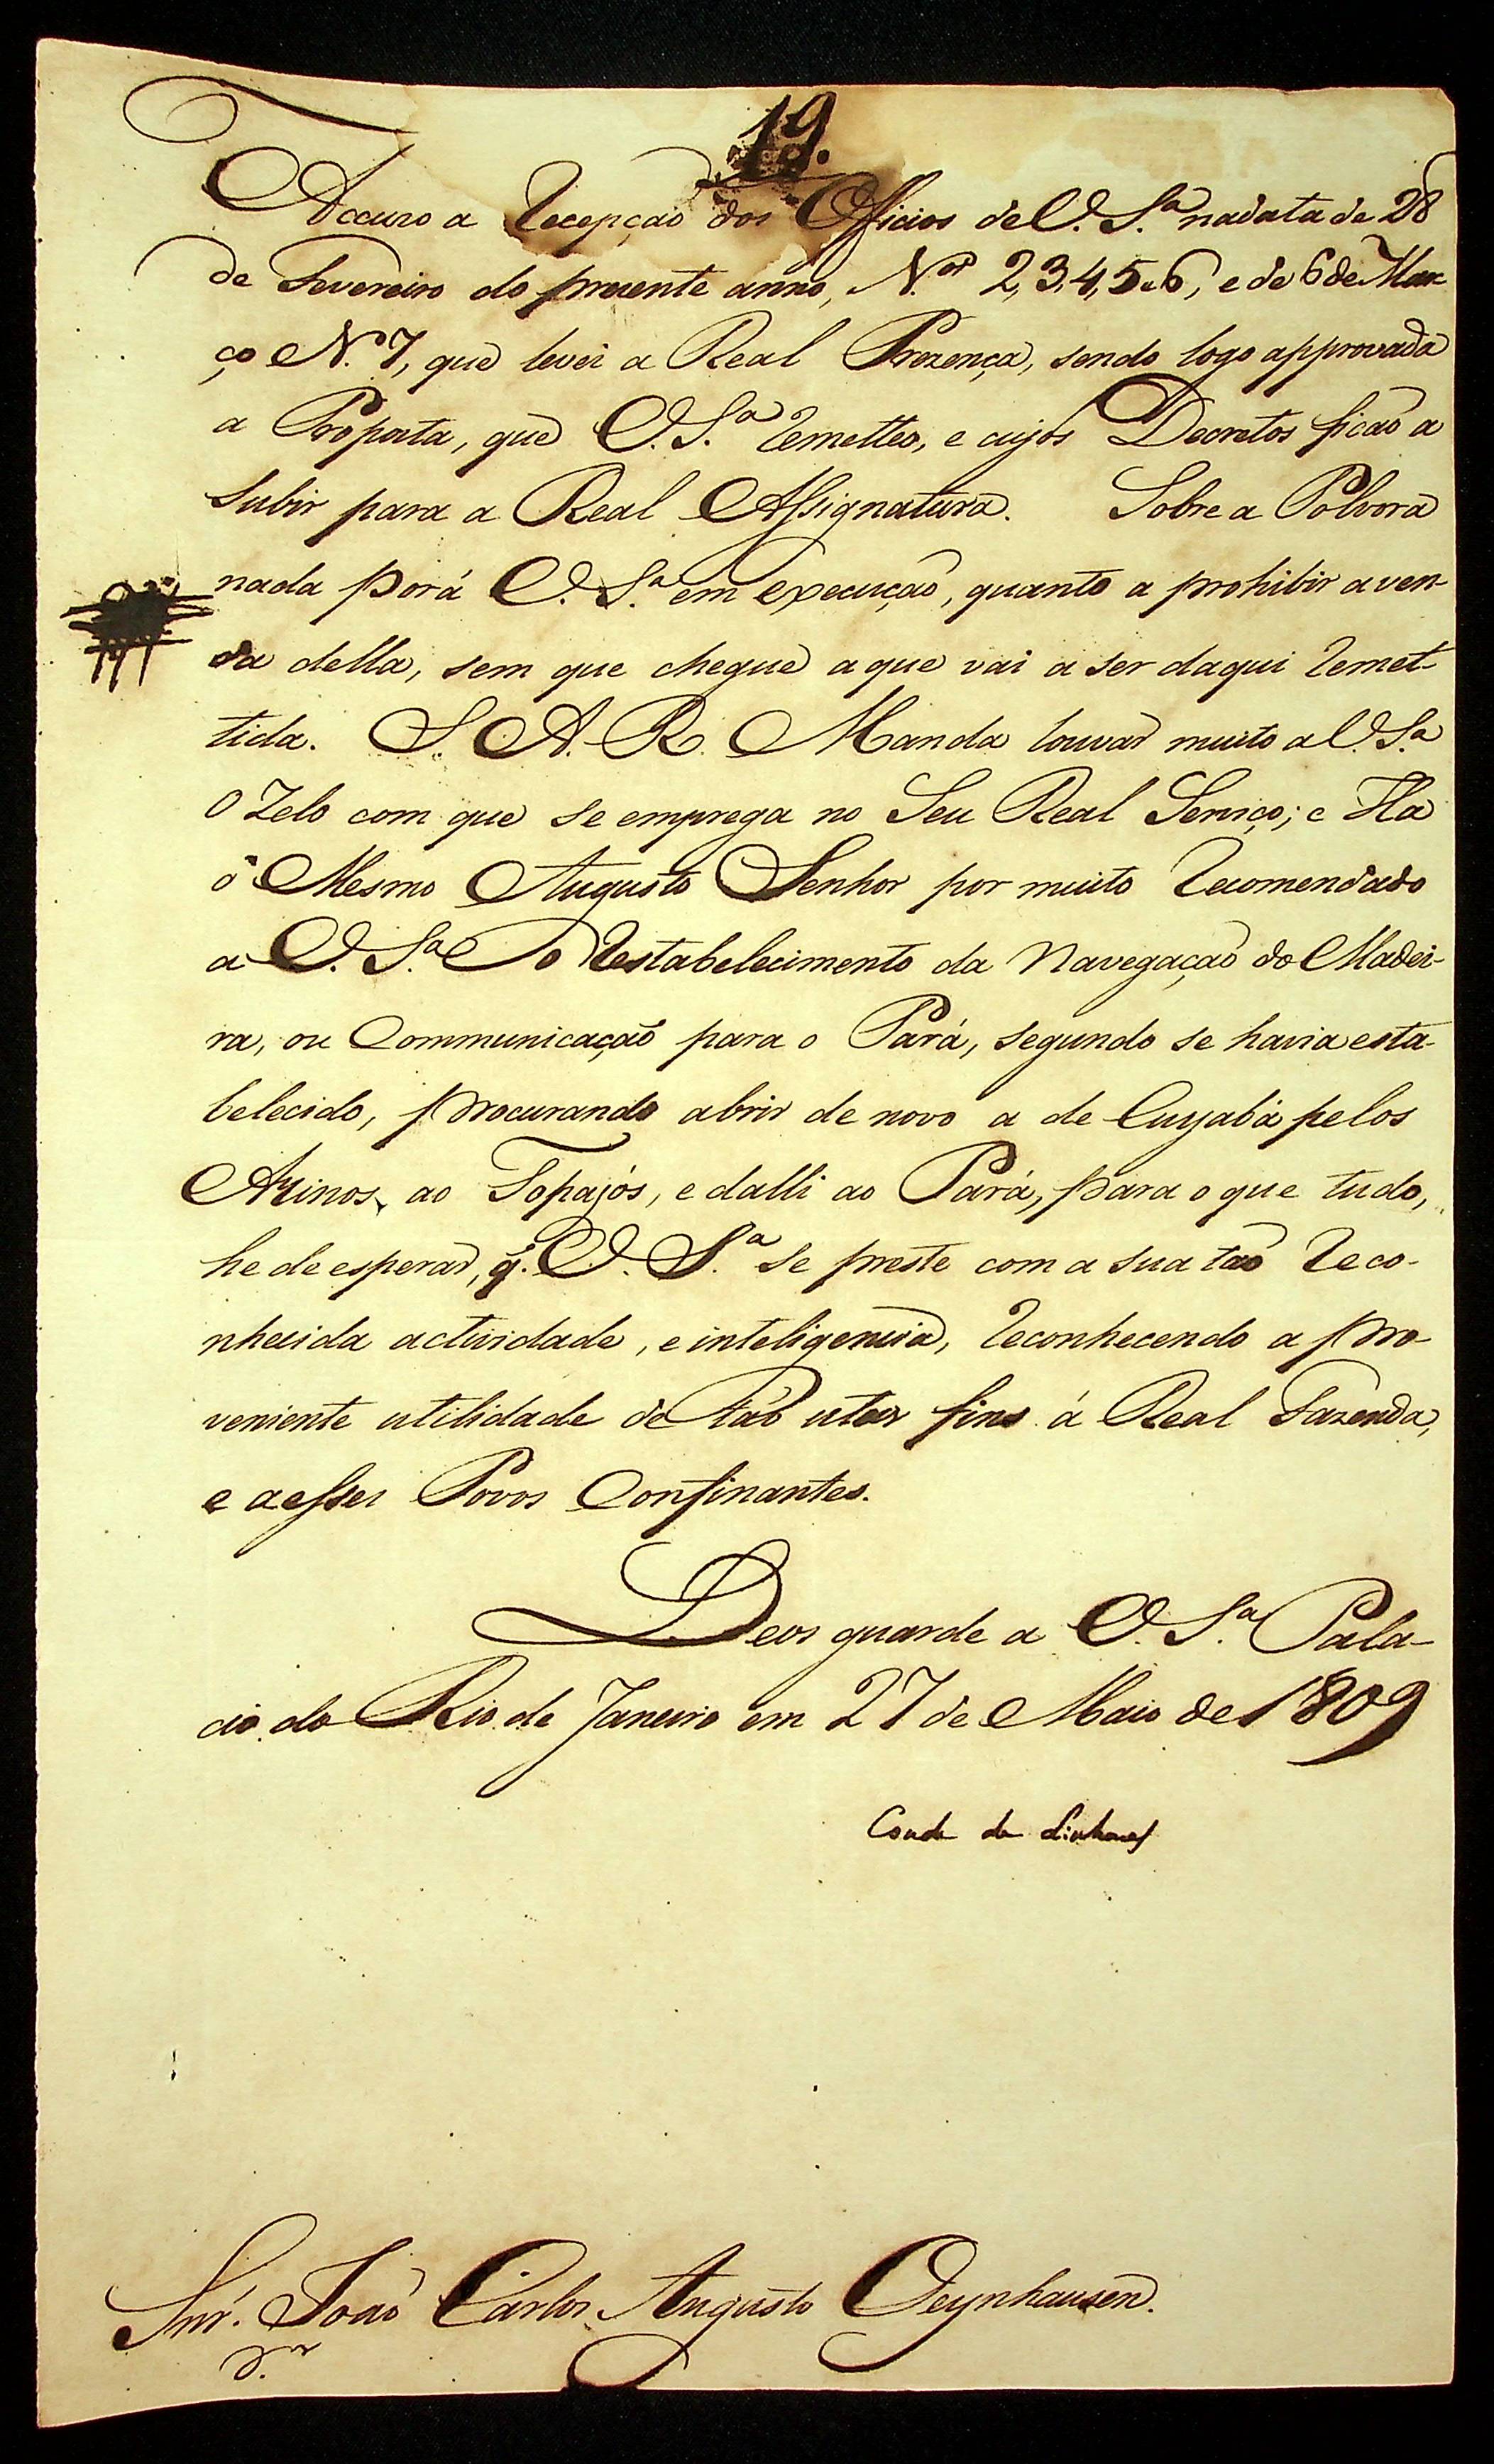 19.
Accuzo a recepção dos Officios de V. S.ª na data de 28
de Fevereiro do prezente anno, N.os 2, 3, 4, 5 e 6, e de 6 de Mar-
ço N.º 7, que levei a Real Prezença, sendo logo approvada
a Proposta, que V. S.ª remetteo, e cujos Decretos ficão a
subir para a Real Assignatura. Sobre a Polvora
nada porá V. S.ª em execução, quanto a prohibir a ven-
da della, sem que chegue a que vai a ser daqui remet-
tida. S. A. R. Manda louvar muito a V. S.ª
o Zelo com que se emprega no Seu Real Serviço; e Ha
o Mesmo Augusto Senhor por muito recomendado
a V. S.ª o restabelecimento da Navegação do Madei-
ra, ou Communicação para o Pará, segundo se havia esta-
belecido, procurando abrir de novo a de Cuyabá pelos
Arinos, ao Topajós, e dalli ao Pará, para o que tudo,
he de esperar, q. V. S.ª se preste com a sua tão reco-
nhecida actividade, e inteligencia, reconhecendo a pro-
veniente utilidade de tão uteis fins á Real Fazenda,
e a esses Povos Confinantes.
Deos guarde a V. S.ª Pala-
cio do Rio de Janeiro em 27 de Maio de 1809
Conde de Linhares
Snr. João Carlos Augusto Oeynhausen.